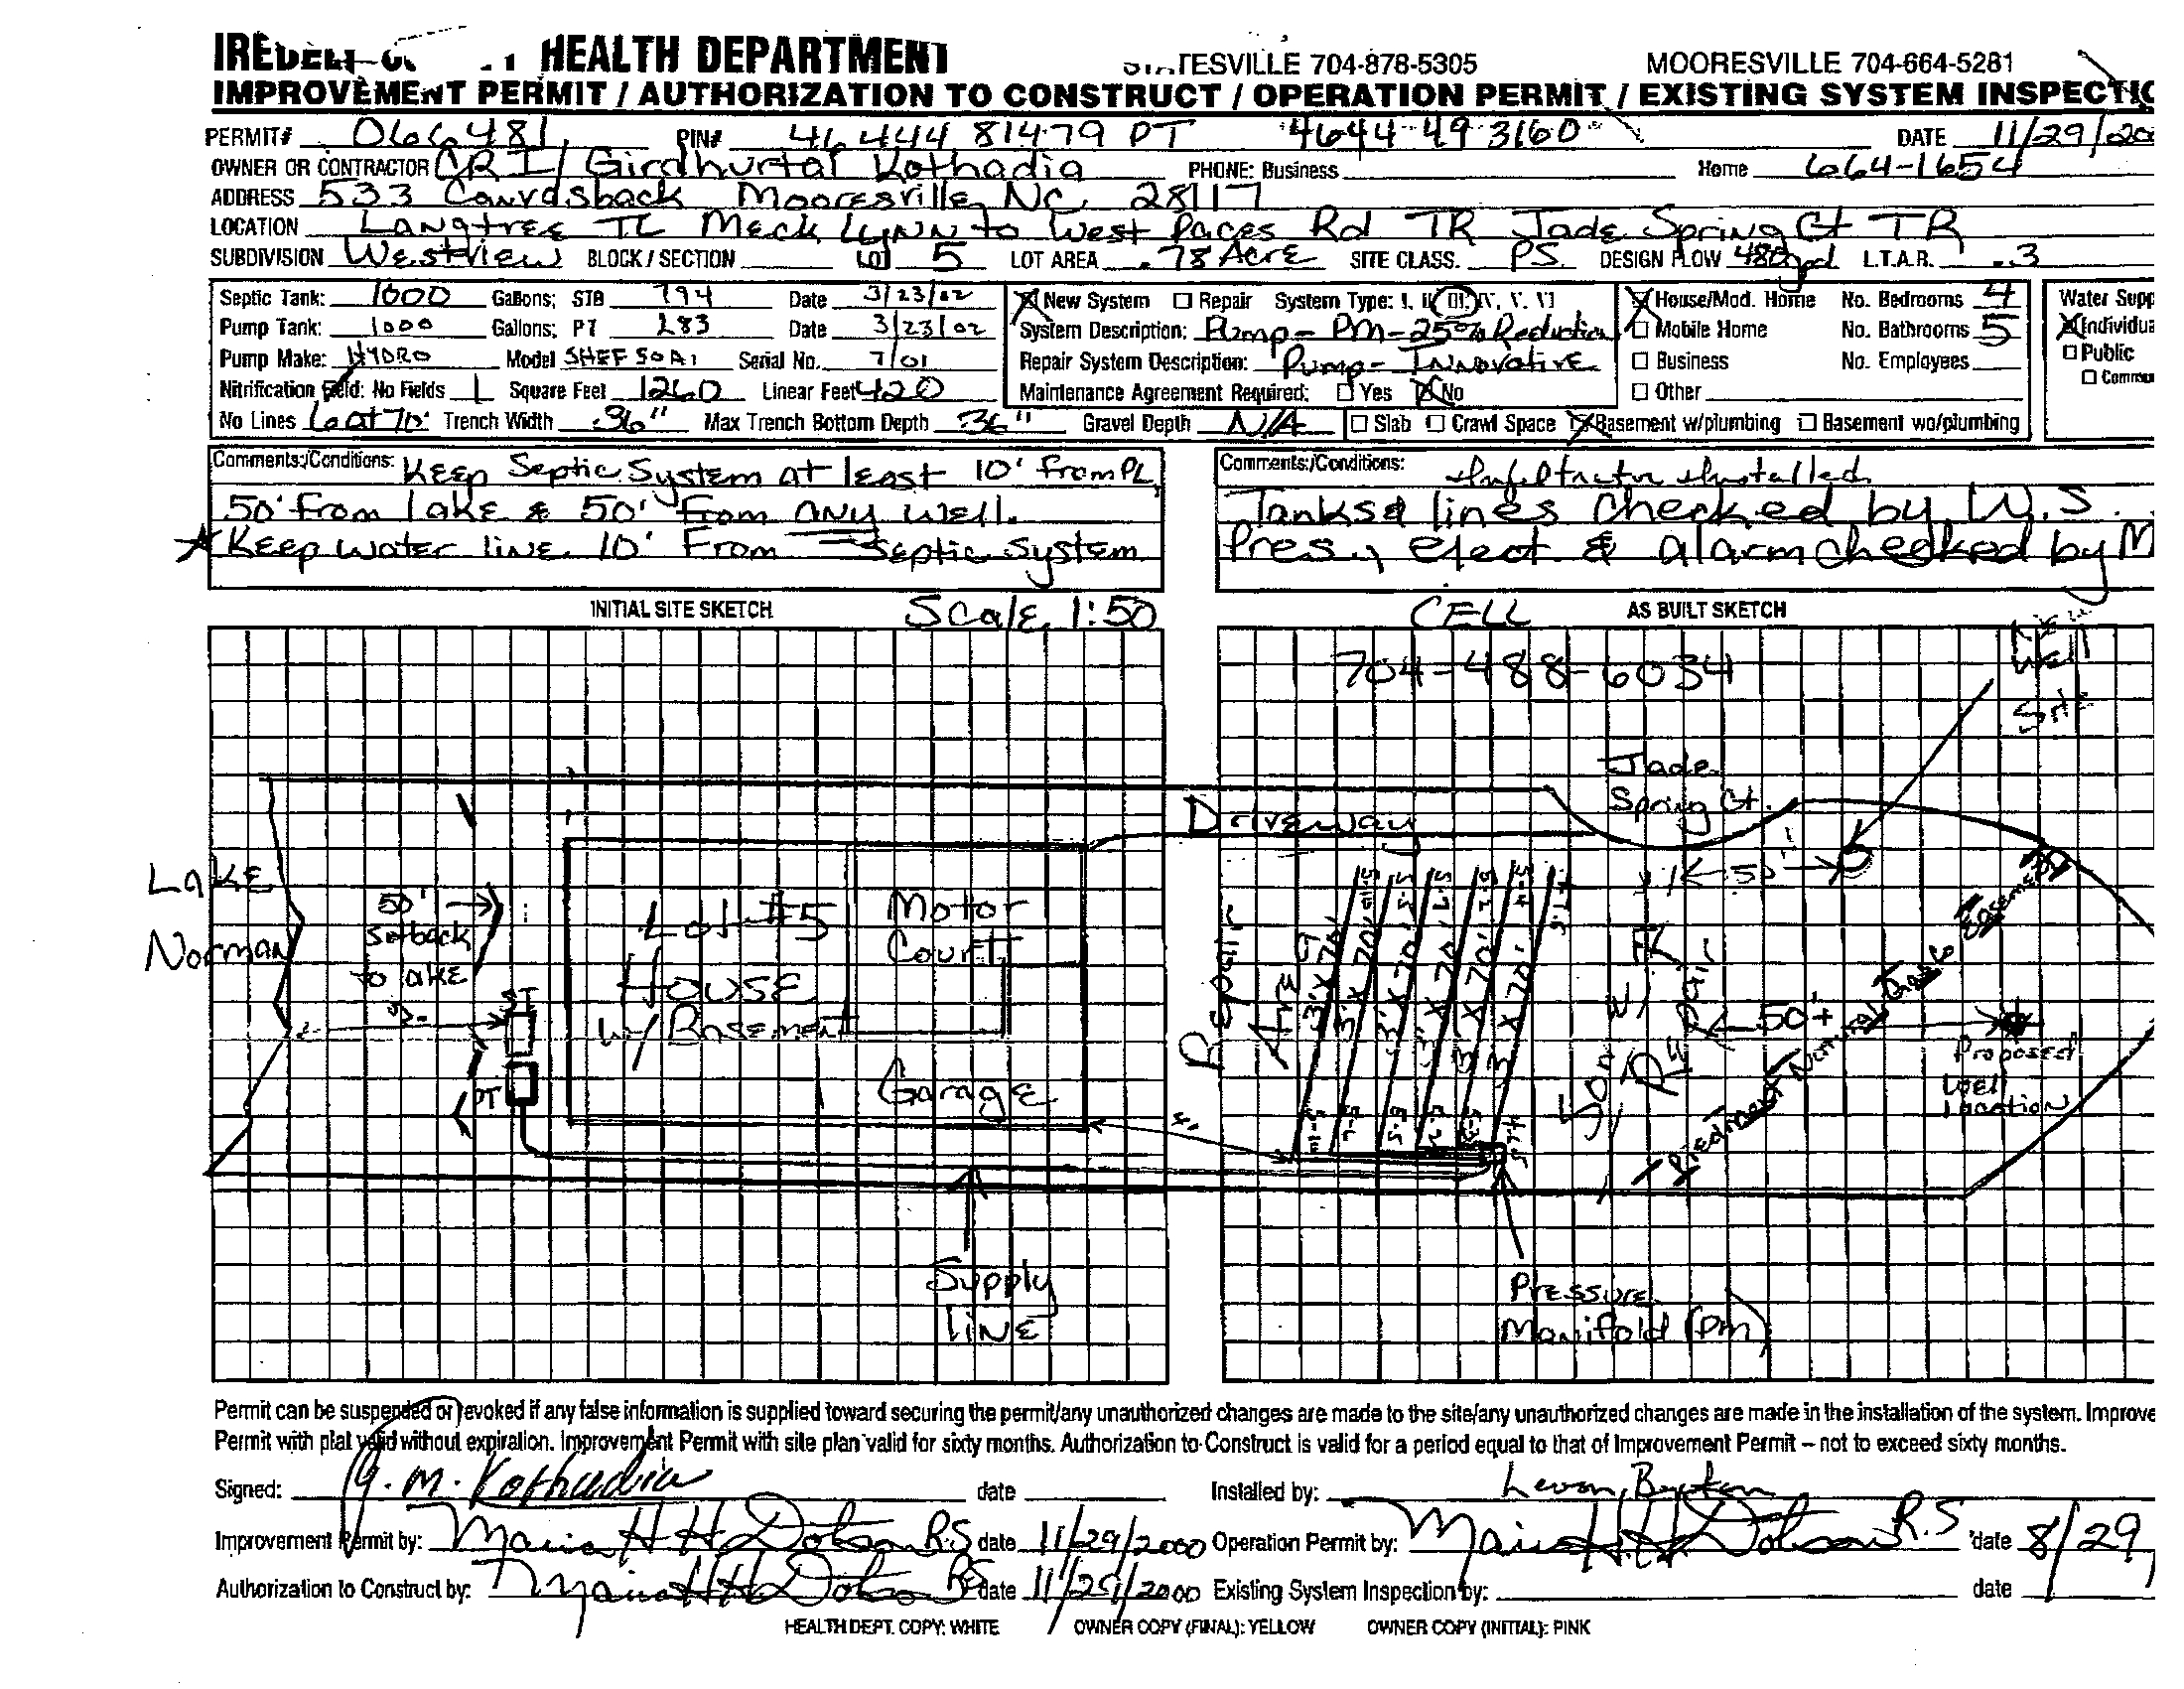 HEALTH DEPARTMENT TESVILLE 704-878-5305 MOORESVILLE 704-664-5281
IMPROVEMENT PERMIT / AUTHORIZATION TO CONSTRUCT / OPERATION PERMIT / EXISTING SYSTEM INSPECTIO
PERMIT# 066481 PIN# 46444 81479 PT 4644-49 3160 DATE 11/29/200
OWNER OR CONTRACTOR CRI/ Girdhurtal Kothadia PHONE: Business Home 664-1654
ADDRESS 533 Canvasback Mooresville, NC 28117
LOCATION Langtree TL Meck Lynn to West Paces Rd TR Jade Spring Ct TR
SUBDIVISION Westview BLOCK / SECTION LOT 5 LOT AREA .78 Acre SITE CLASS. PS. DESIGN FLOW 480gpd L.T.A.R. .3
Septic Tank: 1000 Gallons; STB 794 Date 3/23/02
Pump Tank: 1000 Gallons; PT 283 Date 3/23/02
Pump Make: HYDRO Model SHEF 50A1 Serial No. 7/01
Nitrification Field: No Fields 1 Square Feet 1260 Linear Feet 420
No Lines 6 at 70' Trench Width 36" Max Trench Bottom Depth 36" Gravel Depth N/A
New System Repair System Type: I, II, III, IV, V, VI
System Description: Pump - PM - 25% Reduction
Repair System Description: Pump - Innovative
Maintenance Agreement Required: Yes No
House/Mod. Home No. Bedrooms 4
Mobile Home No. Bathrooms 5
Business No. Employees
Other
Slab Crawl Space Basement w/plumbing Basement wo/plumbing
Water Supp
Individua
Public
Commu
Comments:/Conditions: Keep Septic System at least 10' from PL,
50' from lake & 50' from any well.
Keep water line 10' From Septic System
Comments:/Conditions: Infiltrator Installed
Tanks & lines checked by W.S.
Pres., eject & alarm checked by M
INITIAL SITE SKETCH Scale 1:50
CELL AS BUILT SKETCH
704-488-6034
Well
Site
Jade
Spring Ct.
Driveway
Lake
Norman
50'
Setback
to lake
ST
PT
Lot #5
House
w/ Basement
Motor
Court
Garage
Repair
Area
3' X 70'
3' X 70'
3' X 70'
3' X 70'
3 X 70'
50'
50+
Piedmont Natural Gas Easement
Proposed
Well
Location
Supply
line
Pressure
Manifold (pm)
Permit can be suspended or revoked if any false information is supplied toward securing the permit/any unauthorized changes are made to the site/any unauthorized changes are made in the installation of the system. Improve
Permit with plat valid without expiration. Improvement Permit with site plan valid for sixty months. Authorization to Construct is valid for a period equal to that of Improvement Permit – not to exceed sixty months.
Signed: G. M. Kothadia date Installed by:
Improvement Permit by: Maria H H Dotson R.S date 11/29/2000 Operation Permit by: Maria H.H Dotson R.S date 8/29
Authorization to Construct by: Maria H H Dotson RS date 11/29/2000 Existing System Inspection by: date
HEALTH DEPT. COPY: WHITE OWNER COPY (FINAL): YELLOW OWNER COPY (INITIAL): PINK